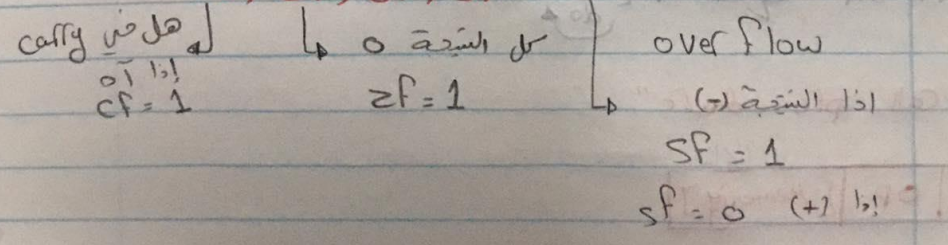 هل في carry
إذا آه
cf = 1
كل النتيجة 0
zf = 1
over flow
اذا النتيجة (-)
Sf = 1
إذا (+) sf = 0